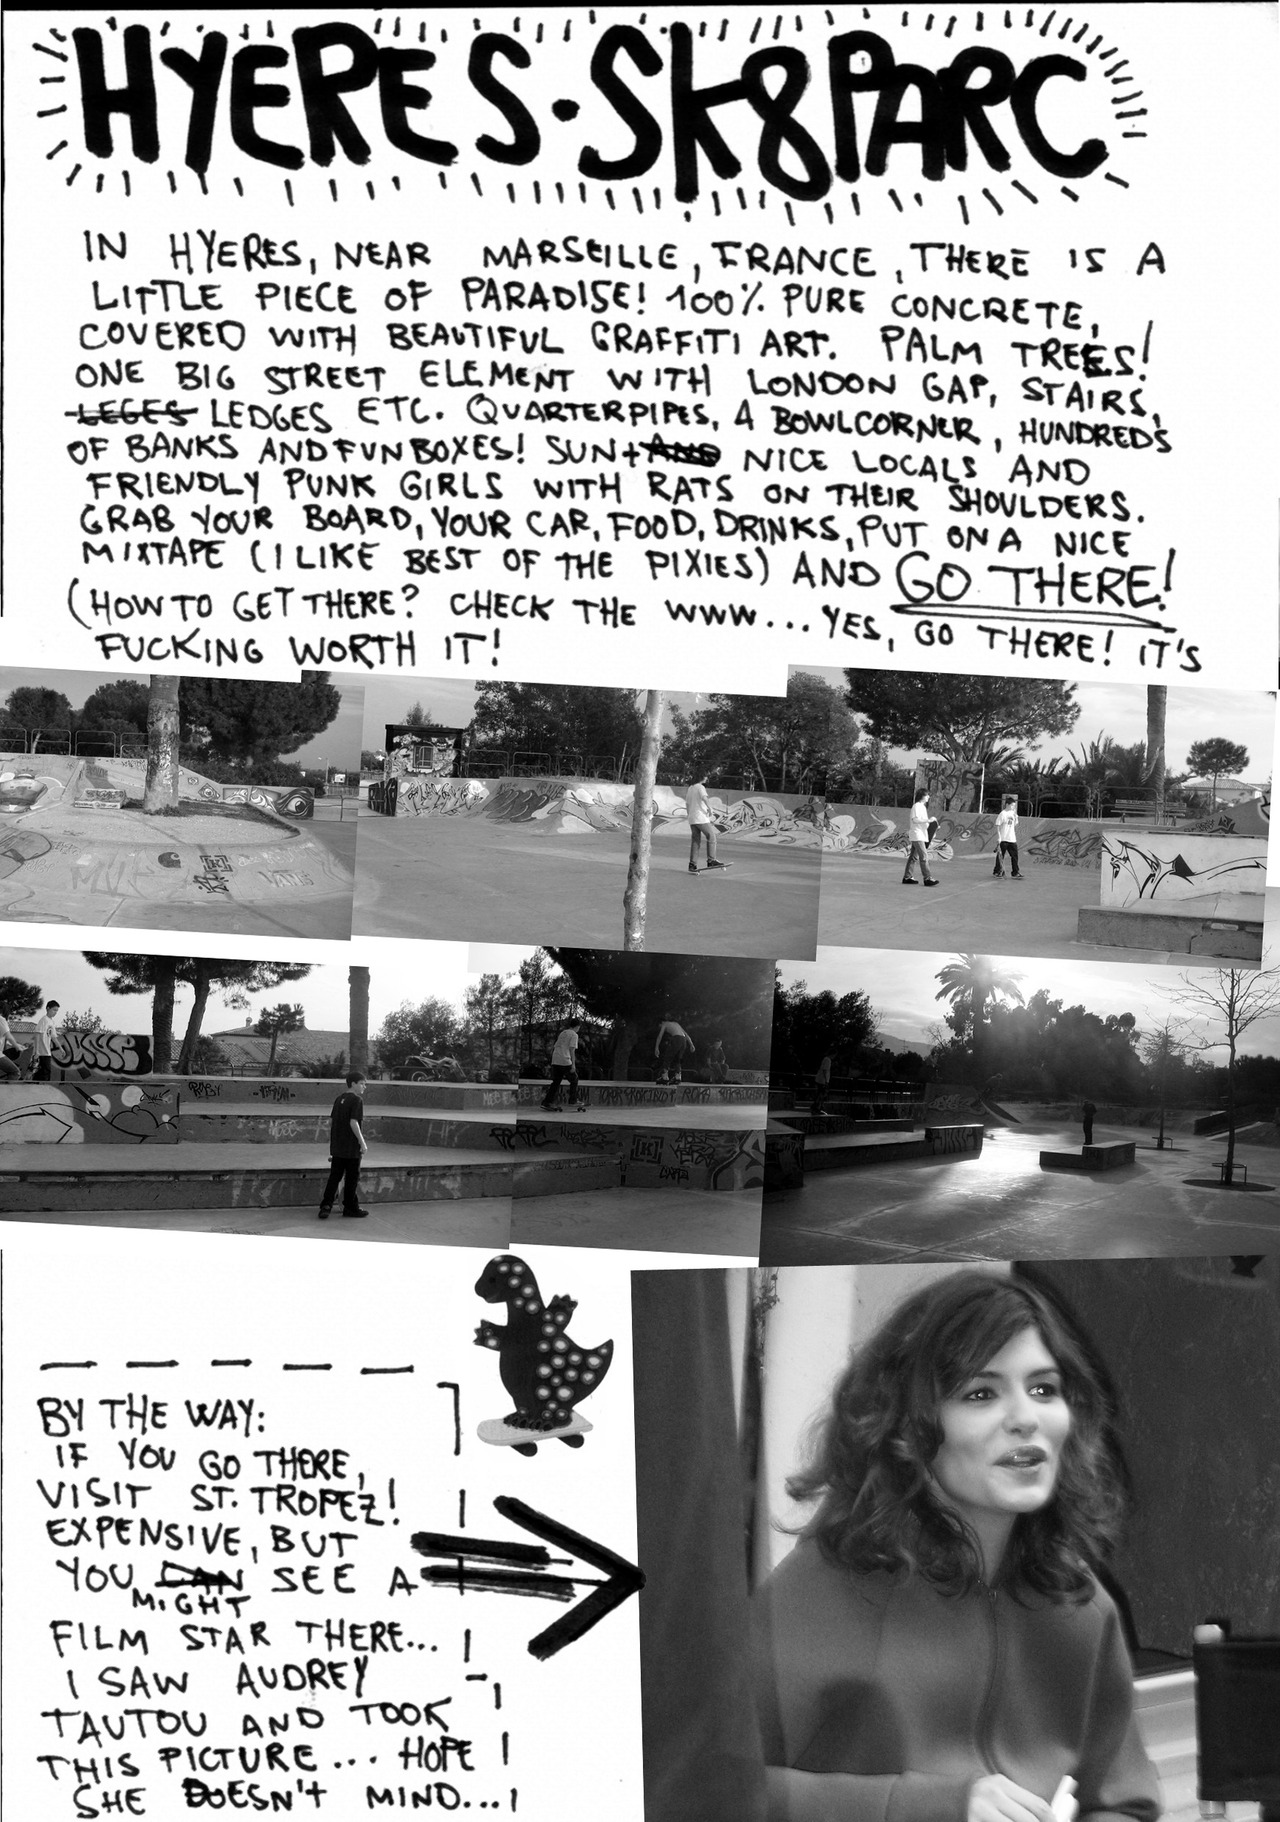 HYERES·SK8PARC
IN HYERES, NEAR MARSEILLE, FRANCE, THERE IS A
LITTLE PIECE OF PARADISE! 100% PURE CONCRETE,
COVERED WITH BEAUTIFUL GRAFFITI ART. PALM TREES!
ONE BIG STREET ELEMENT WITH LONDON GAP, STAIRS,
LEGES LEDGES ETC. QUARTERPIPES, A BOWLCORNER, HUNDREDS
OF BANKS AND FUNBOXES! SUN + AND NICE LOCALS AND
FRIENDLY PUNK GIRLS WITH RATS ON THEIR SHOULDERS.
GRAB YOUR BOARD, YOUR CAR, FOOD, DRINKS, PUT ON A NICE
MIXTAPE (I LIKE BEST OF THE PIXIES) AND GO THERE!
(HOW TO GET THERE? CHECK THE WWW... YES, GO THERE! IT'S
FUCKING WORTH IT!
BY THE WAY:
IF YOU GO THERE,
VISIT ST. TROPEZ!
EXPENSIVE, BUT
YOU CAN SEE A
MIGHT
FILM STAR THERE...
I SAW AUDREY
TAUTOU AND TOOK
THIS PICTURE... HOPE
SHE DOESN'T MIND...